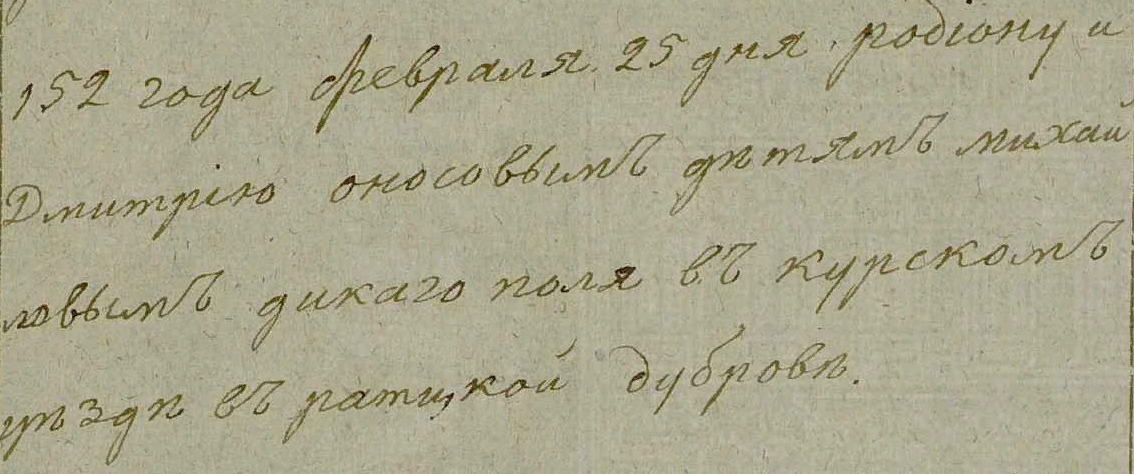 152 года февраля 25 дня родіону и
Дмитрію оносовымъ дѣтямъ михай
ловымъ дикаго поля въ курскомъ
уѣздѣ въ ратцкой дубровѣ.